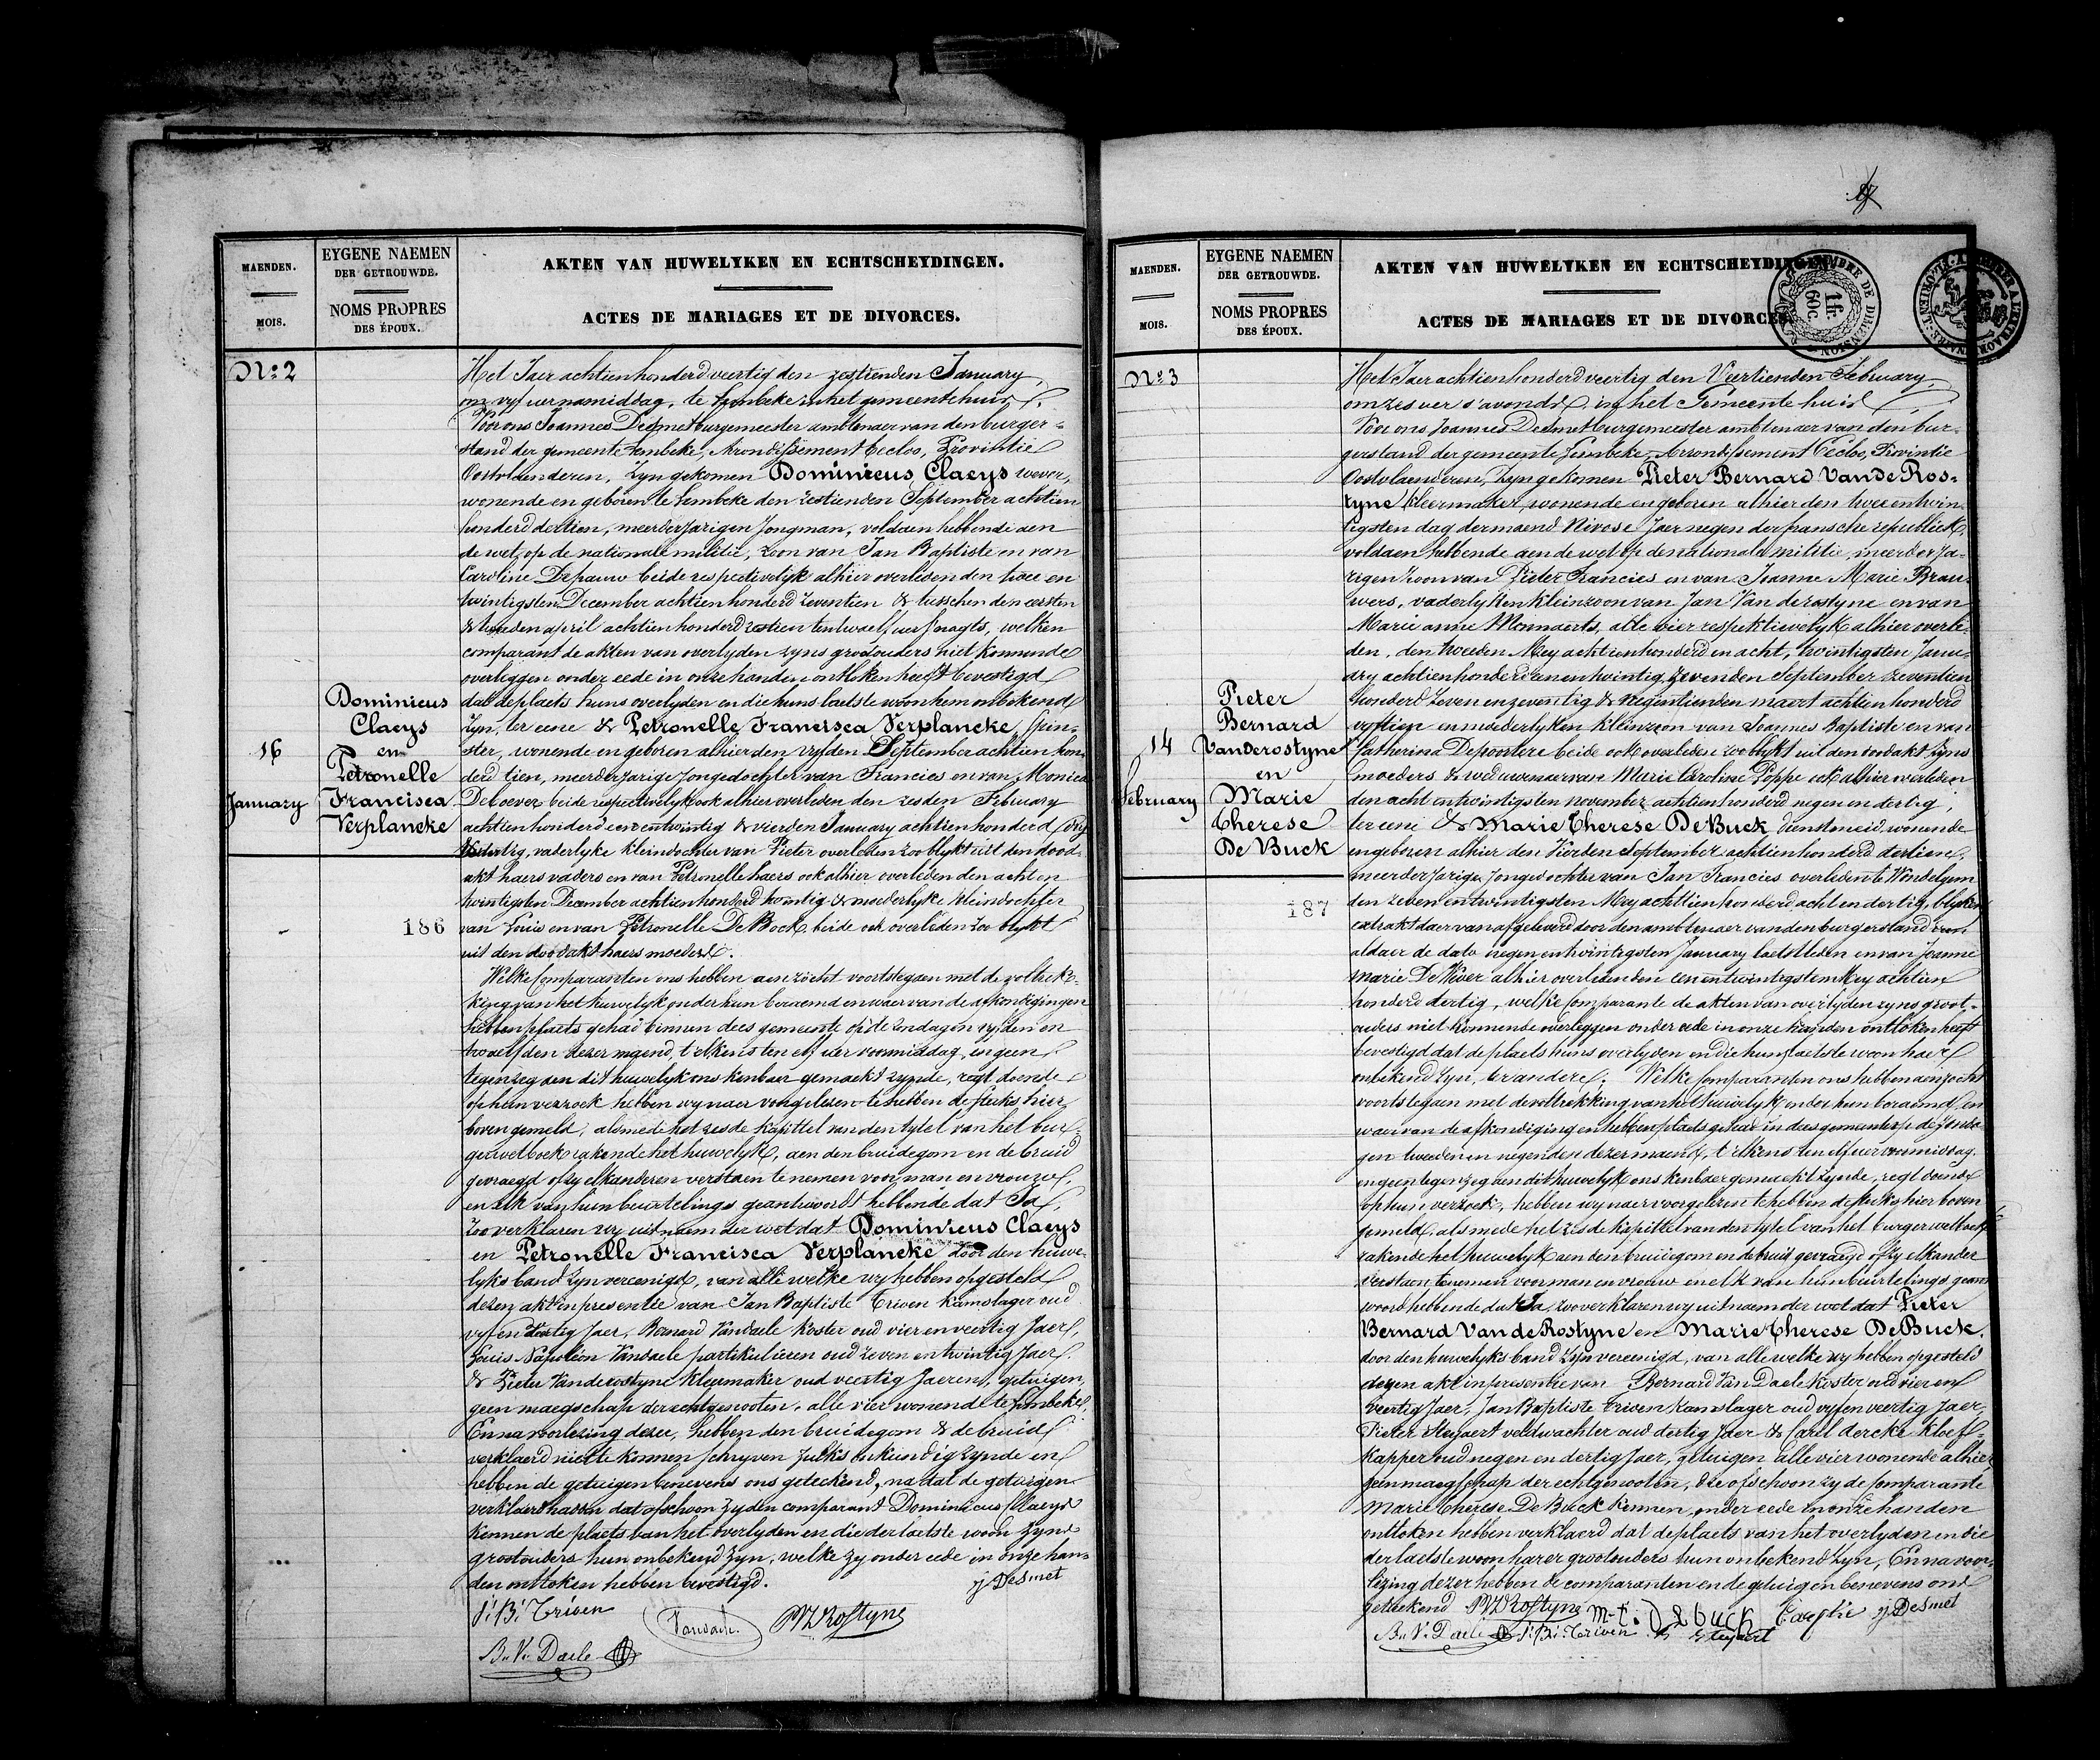 MAENDEN.
MOIS.
EYGENE NAEMEN
DER GETROUWDE.
NOMS PROPRES
DES ÉPOUX.
AKTEN VAN HUWELYKEN EN ECHTSCHEYDINGEN.
ACTES DE MARIAGES ET DE DIVORCES.
No: 2
16
January
Dominicus
Claeys
en
Petronelle
Francisca
Verplancke
186
Het Jaer achtienhonderd veertig den zestienden January,
om vyf uer namiddag, te Lembeke in het gemeentehuis,
Voor ons Joannes Desmet burgemeester amblenaer van den burger-
stand der gemeente Lembeke, Arrondissement Eecloo, Provintie
Oostvlaenderen, zyn gekomen Dominicus Claeys wever,
wonende en geboren te Lembeke den zestienden September achtien
honderd dertien, meerderjarigen Jongman, voldaen hebbende aen
de wet op de nationale militie, zoon van Jan Baptiste en van
Caroline Depauw beide respectivelyk alhier overleden den twee en
twintigsten December achtienhonderd zeventien & tusschen den eersten
& tweeden april achtienhonderd zestien ten twaelf uer snagts, welken
comparant de akten van overlyden zyns grootouders niet konnende
overleggen onder eede in onze handen ontloken heeft bevestigd
dat de plaets huns overlyden en die huns laetste woon hem onbekend
zyn, ter eene & Petronelle Francisca Verplancke, spin-
ster, wonende en geboren alhier den vyfden September achtien hon-
derd tien, meerderjarige Jongedochter van Francies en van Monica
De Coever beide respectivelyk ook alhier overleden den zesden February
achtienhonderd een entwintig & vierden January achtienhonderd dry
&dertig, vaderlyke kleindochter van Pieter overleden zoo blykt uit den dood-
akt haers vaders en van Petronelle haers ook alhier overleden den acht en
twintigsten December achtienhonderd twintig & moederlyke kleindochter
van Louis en van Petronelle De Bock beide ook overleden zoo blykt
uit den doodakt haers moeders.
Welke Comparanten ons hebben aenzocht voortstegaen met de voltrek-
king van het huwelyk onder hun beraemd en waer van de afkondigingen
hebben plaets gehad binnen dees gemeente op de zondagen vyfden en
twaelfden dezer maend, t'elkens ten elf uer voormiddag, en geen
tegenzeg aen dit huwelyk ons kenbaer gemaekt zynde, regt doende
op hun verzoek hebben wy naer voorgelezen te hebben de stuks hier
boven gemeld, alsmede het zesde kapittel van den tytel van het bur-
gerwetboek rakende het huwelyk, aen den bruidegom en de bruid
gevraegd of zy elkanderen verstaen te nemen voor man en vrouw,
en elk van hun beurtelings geantwoord hebbende dat Ja,
zoo verklaren wy uit naem der wet dat Dominicus Claeys
en Petronelle Francisca Verplancke door den huwe-
lyks band zyn vereenigd, van alle welke wy hebben opgesteld
dezen akt in presentie van Jan Baptiste Triven kamslager oud
vyf en veertig Jaer, Bernard Vandaele koster oud vier en veertig Jaer,
Louis Napoléon Vandaele partikulieren oud zeven en twintig Jaer
& Pieter Vanderostyne kleermaker oud veertig Jaeren, getuigen,
geen maegschap der echtgenooten, alle vier wonende te Lembeke,
En na voorlezing dezer, hebben den bruidegom & de bruid
verklaerd niet te konnen schryven zulks onkundig zynde en
hebben de getuigen benevens ons geteekend, na dat de getuigen
verklaerd hadden dat ofschoon zy den comparant Dominicus Claeys
kennen de plaets van het overlyden en die der laetste woon zyns
grootouders hun onbekend zyn, welke zy onder eede in onze han-
den ontloken hebben bevestigd.
J. Desmet
J: B: Triven
Vandaele
PVDRostyne
B. V. Daele
MAENDEN.
MOIS.
EYGENE NAEMEN
DER GETROUWDE.
NOMS PROPRES
DES ÉPOUX.
AKTEN VAN HUWELYKEN EN ECHTSCHEYDINGEN.
ACTES DE MARIAGES ET DE DIVORCES.
TIMBRE DE DIMENSION
1 fr.
60 c.
No: 3
14
February
Pieter
Bernard
Vanderostyne
en
Marie
Therese
De Buck
187
Het Jaer achtienhonderd veertig den Veertienden February,
om zes uer s'avonds, in het Gemeente huis
Voor ons Joannes Desmet burgemeester amblenaer van den bur-
gerstand der gemeente Lembeke, Arrondissement Eecloo, Provintie
Oostvlaenderen, zyn gekomen Pieter Bernard Van de Ros-
tyne, kleermaker, wonende en geboren alhier den twee entwin-
tigsten dag der maend Nivose Jaer negen der fransche republiek,
voldaen hebbende aen de wet op de nationale militie, meerderja-
rigen zoon van Pieter Francies en van Joanne Marie Brau-
wers, vaderlyken kleinzoon van Jan Van derostyne en van
Marie anne Monnaerts, alle vier respektivelyk alhier overle-
den, den tweeden Mey achtienhonderd en acht, twintigsten Janu-
ary achtienhonderd een entwintig, zevenden September zeventien
honderd zeven en zeventig & negentienden maert achtien honderd
vyftien en moederlyken kleinzoon van Joannes Baptiste en van
Catherina Depoortere beide ook overleden zoo blykt uit den doodakt zyns
moeders & weduwenaer van Marie Caroline Poppe ook alhier overleden
den acht entwintigsten november achtienhonderd negen en dertig,
ter eene & Marie Therese De Buck dienstmeid, wonende
en geboren alhier den Vierden September achtienhonderd dertien,
meerderjarige Jongedochter van Jan Francies overleden te Wondelgem
den zeven entwintigsten Mey achttien honderd acht en dertig, blykens
extrakt daer van afgeleverd door den amblenaer van den burgerstand van
aldaer de dato negen entwintigsten January laetstleden en van Joanne
marie De Wever alhier overleden den een entwintigsten Mey achtien
honderd dertig, welke Comparante de akten van overlyden zyns groot-
ouders niet konnende overleggen onder eede in onze handen ontloken heeft
bevestigd dat de plaets huns overlyden en die hun laetste woon haer
onbekend zyn, ter andere. Welke Comparanten ons hebben aenzocht
voortstegaen met de voltrekking van het huwelyk onder hun beraemd, en
waer van de afkondigingen hebben plaets gehad in dees gemeente op de zonda-
gen tweeden en negenden dezer maend, t'elkens ten elf uer voormiddag,
en geen tegenzeg aen dit huwelyk ons kenbaer gemaekt zynde, regt doende
op hun verzoek, hebben wy naer voorgelezen te hebben de stuks hier boven
gemeld, alsmede het zesde kapittel van den tytel van het burgerwetboek
rakende het huwelyk aen den bruidegom en de bruid gevraegd of zy elkander
verstaen te nemen voor man en vrouw en elk van hun beurtelings geant-
woord hebbende dat Ja, zoo verklaren wy uit naem der wet dat Pieter
Bernard Van de Rostyne en Marie Therese De Buck,
door den huwelyks band zyn vereenigd, van alle welke wy hebben opgesteld
dezen akt in presentie van Bernard Van Daele koster oud vier en
veertig Jaer, Jan Baptiste Triven kamslager oud vyf en veertig Jaer,
Pieter Steyaert veldwachter oud dertig Jaer & Carel Aercke kloef-
kapper oud negen en dertig Jaer, getuigen alle vier wonende alhier
geen maegschap der echtgenooten, die ofschoon zy de Comparante
Marie Therese De Buck kennen, onder eede in onze handen
ontloken hebben verklaerd dat de plaets van het overlyden en die
der laetste woon harer grootouders hun onbekend zyn, En na voor-
lezing dezer hebben de comparanten en de getuigen benevens ons
geteekend PVDRostyne M. t. De buck J. Desmet
B. V. Daele J: B: Triven Steyaert